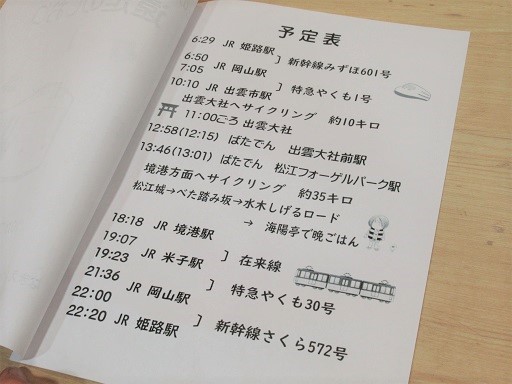 予定表
6:29 JR 姫路駅
] 新幹線みずほ601号
6:50
7:05 JR 岡山駅
] 特急やくも1号
10:10 JR 出雲市駅
出雲大社へサイクリング 約10キロ
11:00ごろ 出雲大社
12:58(12:15) ばたでん 出雲大社前駅
13:46(13:01) ばたでん 松江フォーゲルパーク駅
境港方面へサイクリング 約35キロ
松江城→べた踏み坂→水木しげるロード
→ 海陽亭で晩ごはん
18:18 JR 境港駅
] 在来線
19:07
19:23 JR 米子駅
] 特急やくも30号
21:36
22:00 JR 岡山駅
] 新幹線さくら572号
22:20 JR 姫路駅